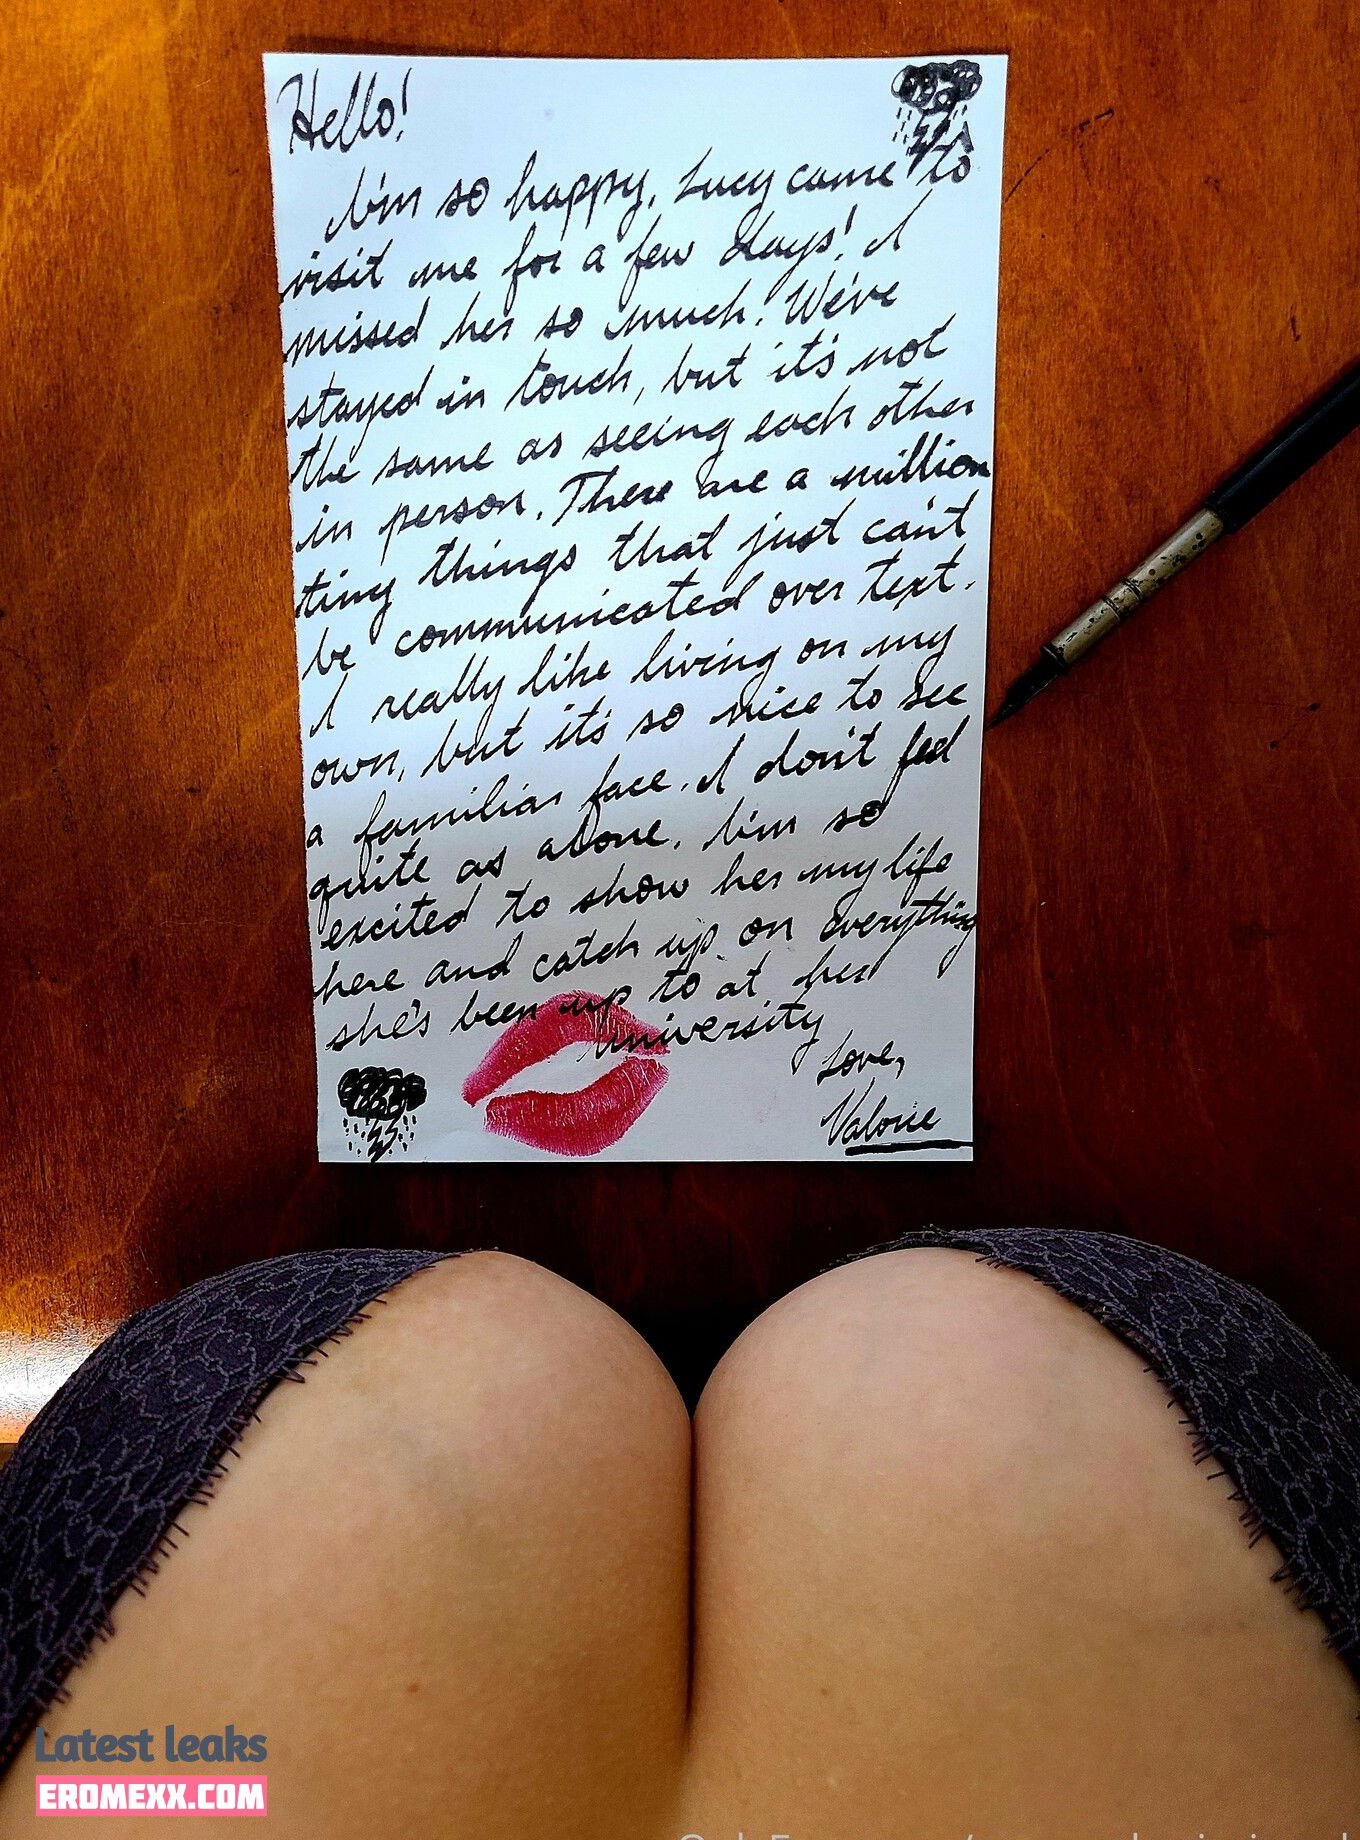 Hello!
I'm so happy, Lucy came to
visit me for a few days! I
missed her so much! We've
stayed in touch, but it's not
the same as seeing each other
in person. There are a million
tiny things that just can't
be communicated over text.
I really like living on my
own, but it's so nice to see
a familiar face. I don't feel
quite as alone. I'm so
excited to show her my life
here and catch up on everything
she's been up to at her
university
Love,
Valorie
Latest leaks
EROMEXX.COM